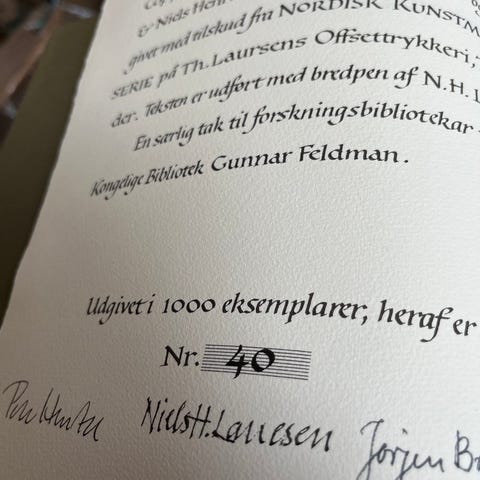 & Niels Hen
givet med tilskud fra NORDISK KUNSTM
SERIE på Th. Laursens Offsettrykkeri,
der. Teksten er udført med bredpen af N.H.
En særlig tak til forskningsbibliotekar
Kongelige Bibliotek Gunnar Feldman.
Udgivet i 1000 eksemplarer, heraf er
Nr. 40
Niels H. Lauesen Jørgen